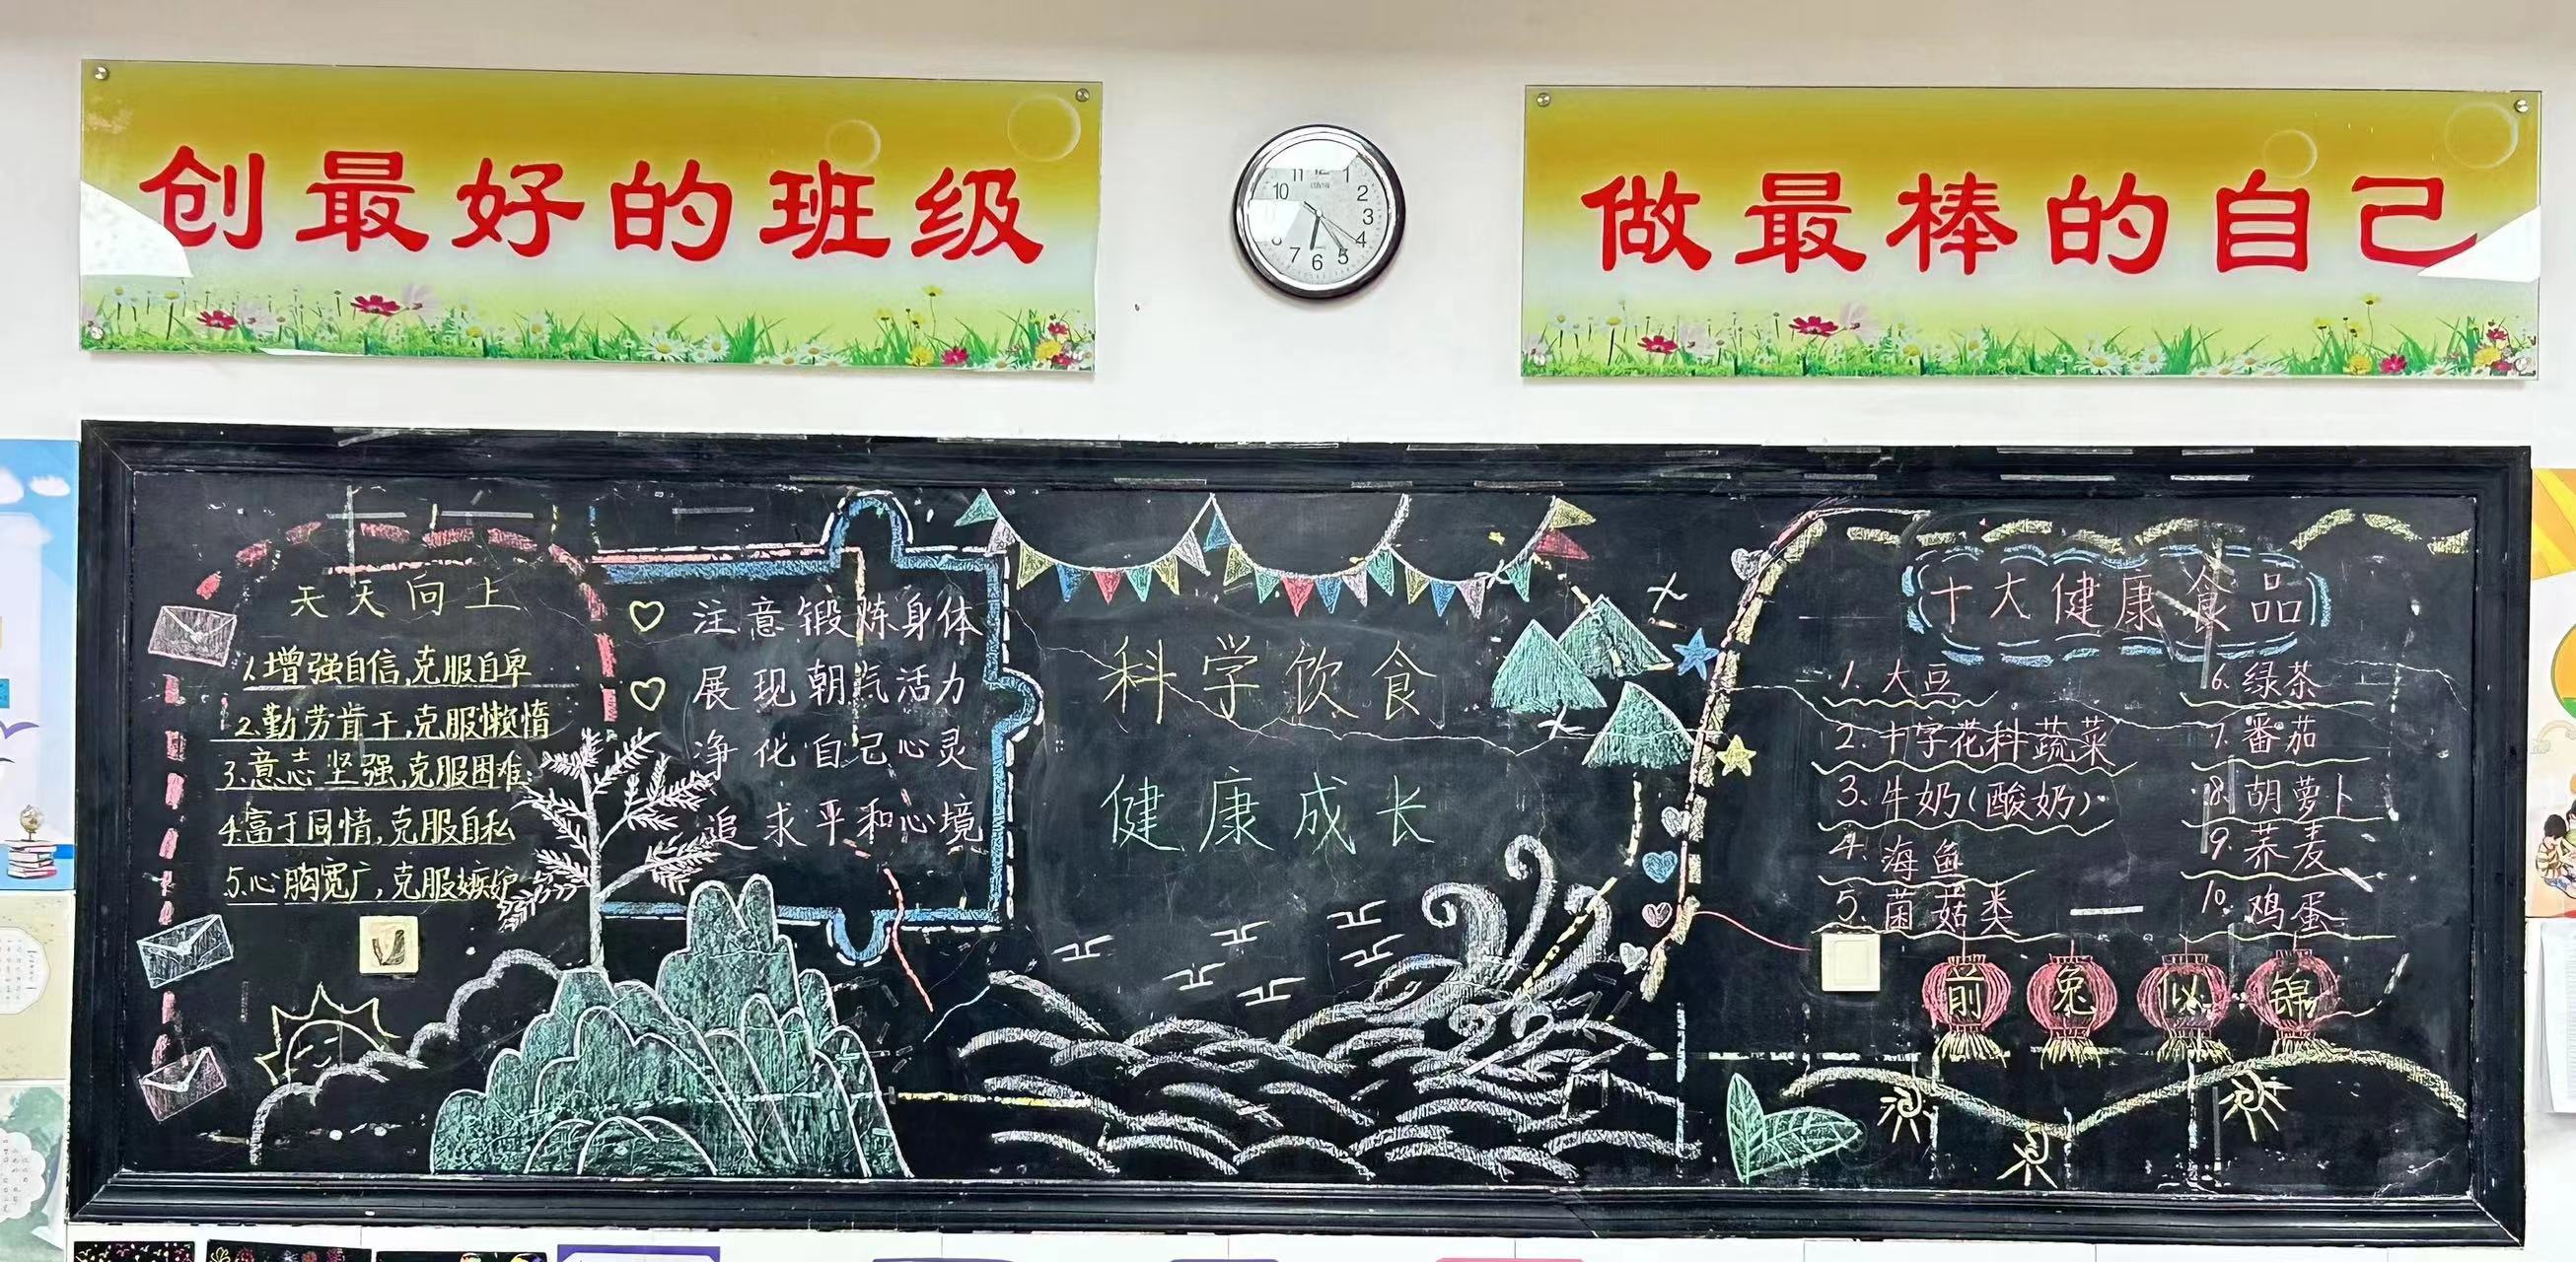 创最好的班级
做最棒的自己
天天向上
1.增强自信,克服自卑
2.勤劳肯干,克服懒惰
3.意志坚强,克服困难;
4.富于同情,克服自私
5.心胸宽广,克服嫉妒
注意锻炼身体
展现朝气活力
净化自己心灵
追求平和心境
科学饮食
健康成长
十大健康食品
1. 大豆
2. 十字花科蔬菜
3. 牛奶(酸奶)
4. 海鱼
5. 菌菇类
6. 绿茶
7. 番茄
8. 胡萝卜
9. 荞麦
10. 鸡蛋
前兔似锦